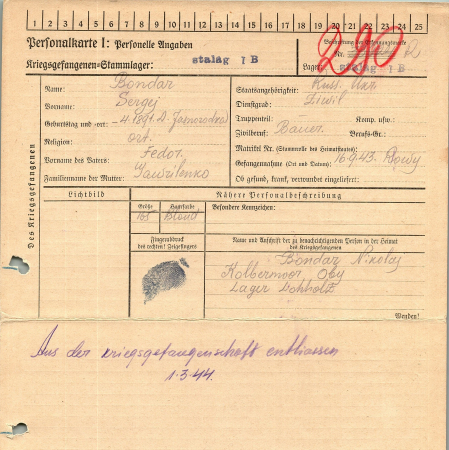 1 2 3 4 5 6 7 8 9 10 11 12 13 14 15 16 17 18 19 20 21 22 23 24 25
Personalkarte I: Personelle Angaben
Kriegsgefangenen-Stammlager: Stalag I B
290
Beschriftung der Erkennungsmarke
Nr.
Lager: Stalag I B
Des Kriegsgefangenen
Name: Bondar
Vorname: Sergej
Geburtstag und -ort: -.4.1891. D. Jasnorodka
Religion: ort.
Vorname des Vaters: Fedor
Familienname der Mutter: Gawrilenko
Staatsangehörigkeit: Russ. Ukr.
Dienstgrad: Zivil
Truppenteil: Komp. usw.:
Zivilberuf: Bauer. Berufs-Gr.:
Matrikel Nr. (Stammrolle des Heimatstaates):
Gefangennahme (Ort und Datum): 16.9.43.
Ob gefund, krank, verwundet eingeliefert:
Lichtbild
Nähere Personalbeschreibung
Größe
Haarfarbe
Besondere Kennzeichen:
165
Blond
Fingerabdruck
des rechten! Zeigefingers
Name und Anschrift der zu benachrichtigenden Person in der Heimat
des Kriegsgefangenen
Bondar Nikolaj
Kolbermoor, Oby
Lager
Wenden!
Aus der Kriegsgefangenschaft entlassen
1.3.44.